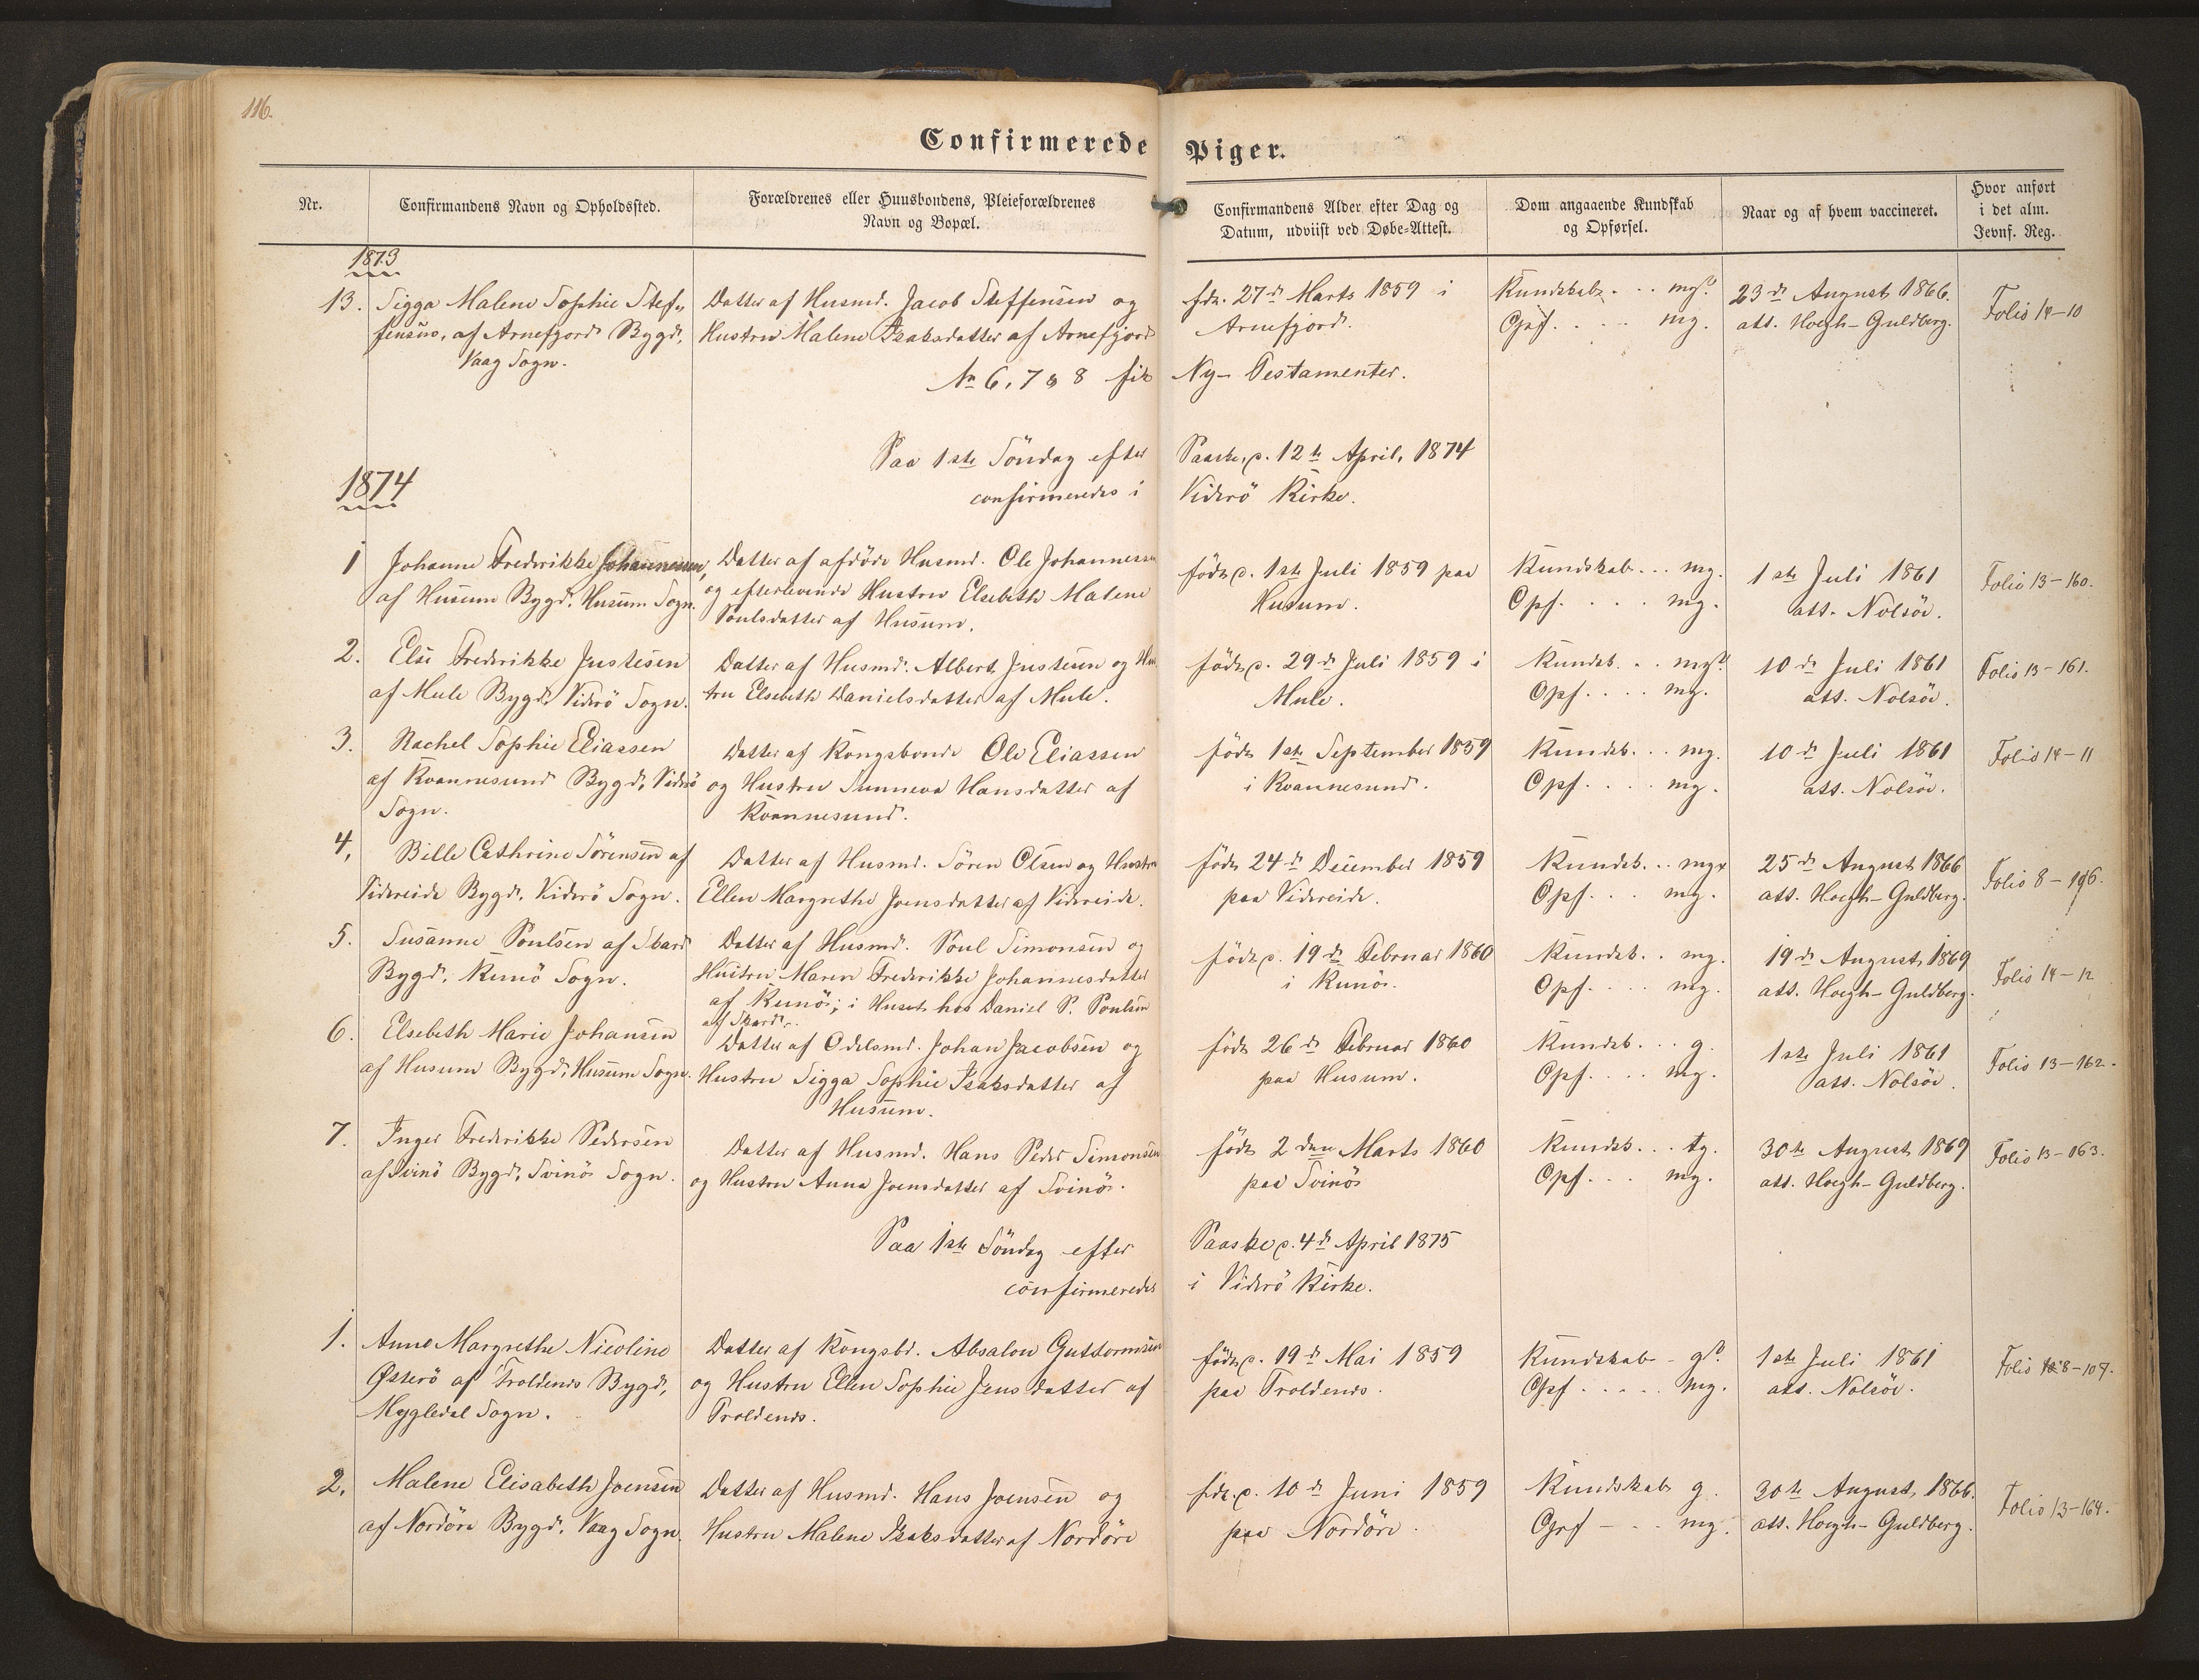 116.
Confirmerede Piger.
Nr.
Confirmandens Navn og Opholdssted.
Forældrenes eller Huusbondens, Pleieforældrenes
Navn og Bopæl.
Confirmandens Alder efter Dag og
Datum, udviist ved Døbe-Attest.
Dom angaaende Kundskab
og Opførsel.
Naar og af hvem vaccineret.
Hvor anført
i det alm.
Jevnf. Reg.
1873
13. Sigga Malene Sophie Stef„
fensens, af Arnefjord Bygd,
Vaag Sogn.
Datter af Husmd. Jacob Steffensen og
Hustru Malene Isaksdatter af Arnefjord
fdt. 27d Marts 1859 i
Arnefjord.
Kundskab . . . mg?
Opf. . . . . mg.
23d August 1866.
att. Hoegh-Guldberg.
Folio 14-10
No 6, 7 & 8 fik Ny- Testamenter.
1874
Paa 1ste Söndag efter Paaske, d. 12te April, 1874
confirmeredes i Viderö Kirke.
1 Johanne Frederikke Johannessen,
af Husum Bygd, Husum Sogn.
Datter af afdöde Husmd. Ole Johannessen
og efterlevende Hustru Elsebeth Malene
Poulsdatter af Husum.
födt d. 1ste Juli 1859 paa
Husum.
Kundskab . . . mg.
Opf. . . . . mg.
1ste Juli 1861
att. Nolsöe.
Folio 13-160.
2. Else Frederikke Justesen
af Mule Bygd, Viderö Sogn.
Datter af Husmd. Albert Justesen og Hus
tru Elsebeth Danielsdatter af Mule.
födt d. 29d Juli 1859 i
Mule.
Kundsk. . . mg?
Opf. . . . . mg.
10de Juli 1861
att. Nolsöe.
Folio 13-161.
3. Rachel Sophie Eliassen
af Kvannesund Bygd, Viderö
Sogn.
Datter af Kongsbonde Ole Eliassen
og Hustru Sunneva Hansdatter af
Kvannesund.
födt 1ste September 1859
i Kvannesund.
Kundsk. . . mg.
Opf. . . . . mg.
10de Juli 1861
att. Nolsöe.
Folio 14-11
4, Bille Cathrine Sörensen af
Videreide Bygd, Viderö Sogn.
Datter af Husmd. Sören Olsen og Hustru
Ellen Margrethe Joensdatter af Videreide.
födt 24d December 1859
paa Videreide.
Kundsk. . . mgx
Opf. . . . mg.
25d August 1866
att. Hoegh-Guldberg.
Folio 8-196.
5. Susanne Poulsen af Skard
Bygd, Kunö Sogn.
Datter af Husmd. Poul Simonsen og
Hustru Maren Frederikke Johannesdatter
af Kunö; i Huset hos Daniel P. Poulsen
af Skard.
födt d. 19de Februar 1860
i Kunö.
Kundsk. . . mg.
Opf. . . . . mg.
19de August 1869
att. Hoegh-Guldberg.
Folio 14-12
6. Elsebeth Marie Johansen
af Husum Bygd, Husum Sogn.
Datter af Odelsmd. Johan Jacobsen og
Hustru Sigga Sophie Isaksdatter af
Husum.
födt 26de Februar 1860
paa Husum.
Kundsk. . . g.
Opf. . . . . mg.
1ste Juli 1861
att. Nolsöe.
Folio 13-162.
7. Inger Frederikke Pedersen
af Svinö Bygd, Svinö Sogn.
Datter af Husmd. Hans Peder Simonsen
og Hustru Anna Joensdatter af Svinö.
födt 2den Marts 1860
paa Svinö
Kundsk. . . tg.
Opf. . . . mg.
30te August 1869
att. Hoegh-Guldberg.
Folio 13-163.
Paa 1ste Söndag efter Paaske d. 4d April 1875
confirmeredes i Viderö Kirke.
1. Anne Margrethe Nicoline
Østerö af Troldenes Bygd,
Mygledal Sogn.
Datter af Kongsbd. Absalon Guttormsen
og Hustru Ellen Sophie Jensdatter af
Troldenes.
födt d. 19de Mai 1859
paa Troldenes.
Kundskab - g?.
Opf . . . . . mg.
1ste Juli 1861
att. Nolsöe.
Folio 8-107.
2. Malene Elisabeth Joensen
af Nordöre Bygd, Vaag Sogn.
Datter af Husmd. Hans Joensen og
Hustru Malene Isaksdatter af Nordöre
fdt. d. 10de Juni 1859
paa Nordöre.
Kundskab g.
Opf - . . mg.
30te August, 1866.
att. Hoegh-Guldberg.
Folio 13-164.